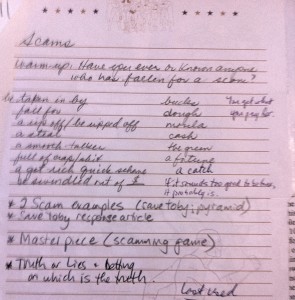 Scams
Warm-up: Have you ever or known anyone
who has fallen for a scam?
taken in by bucks You get what
fall for dough you pay for.
a rip off / be ripped off moola
a steal cash
a smooth-talker the green
full of crap/shit a fortune
a get rich quick scheme a catch
be swindled out of If it sounds too good to be true,
it probably is.
* 2 Scam examples (save toby; pyramid)
* Save Toby response article
* Masterpiece (scamming game)
* Truth or Lies + betting
on which is the truth.
Last used